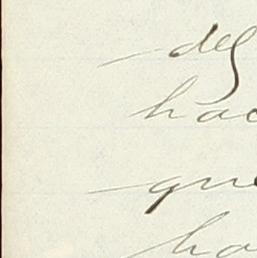 del
hac
que
ha